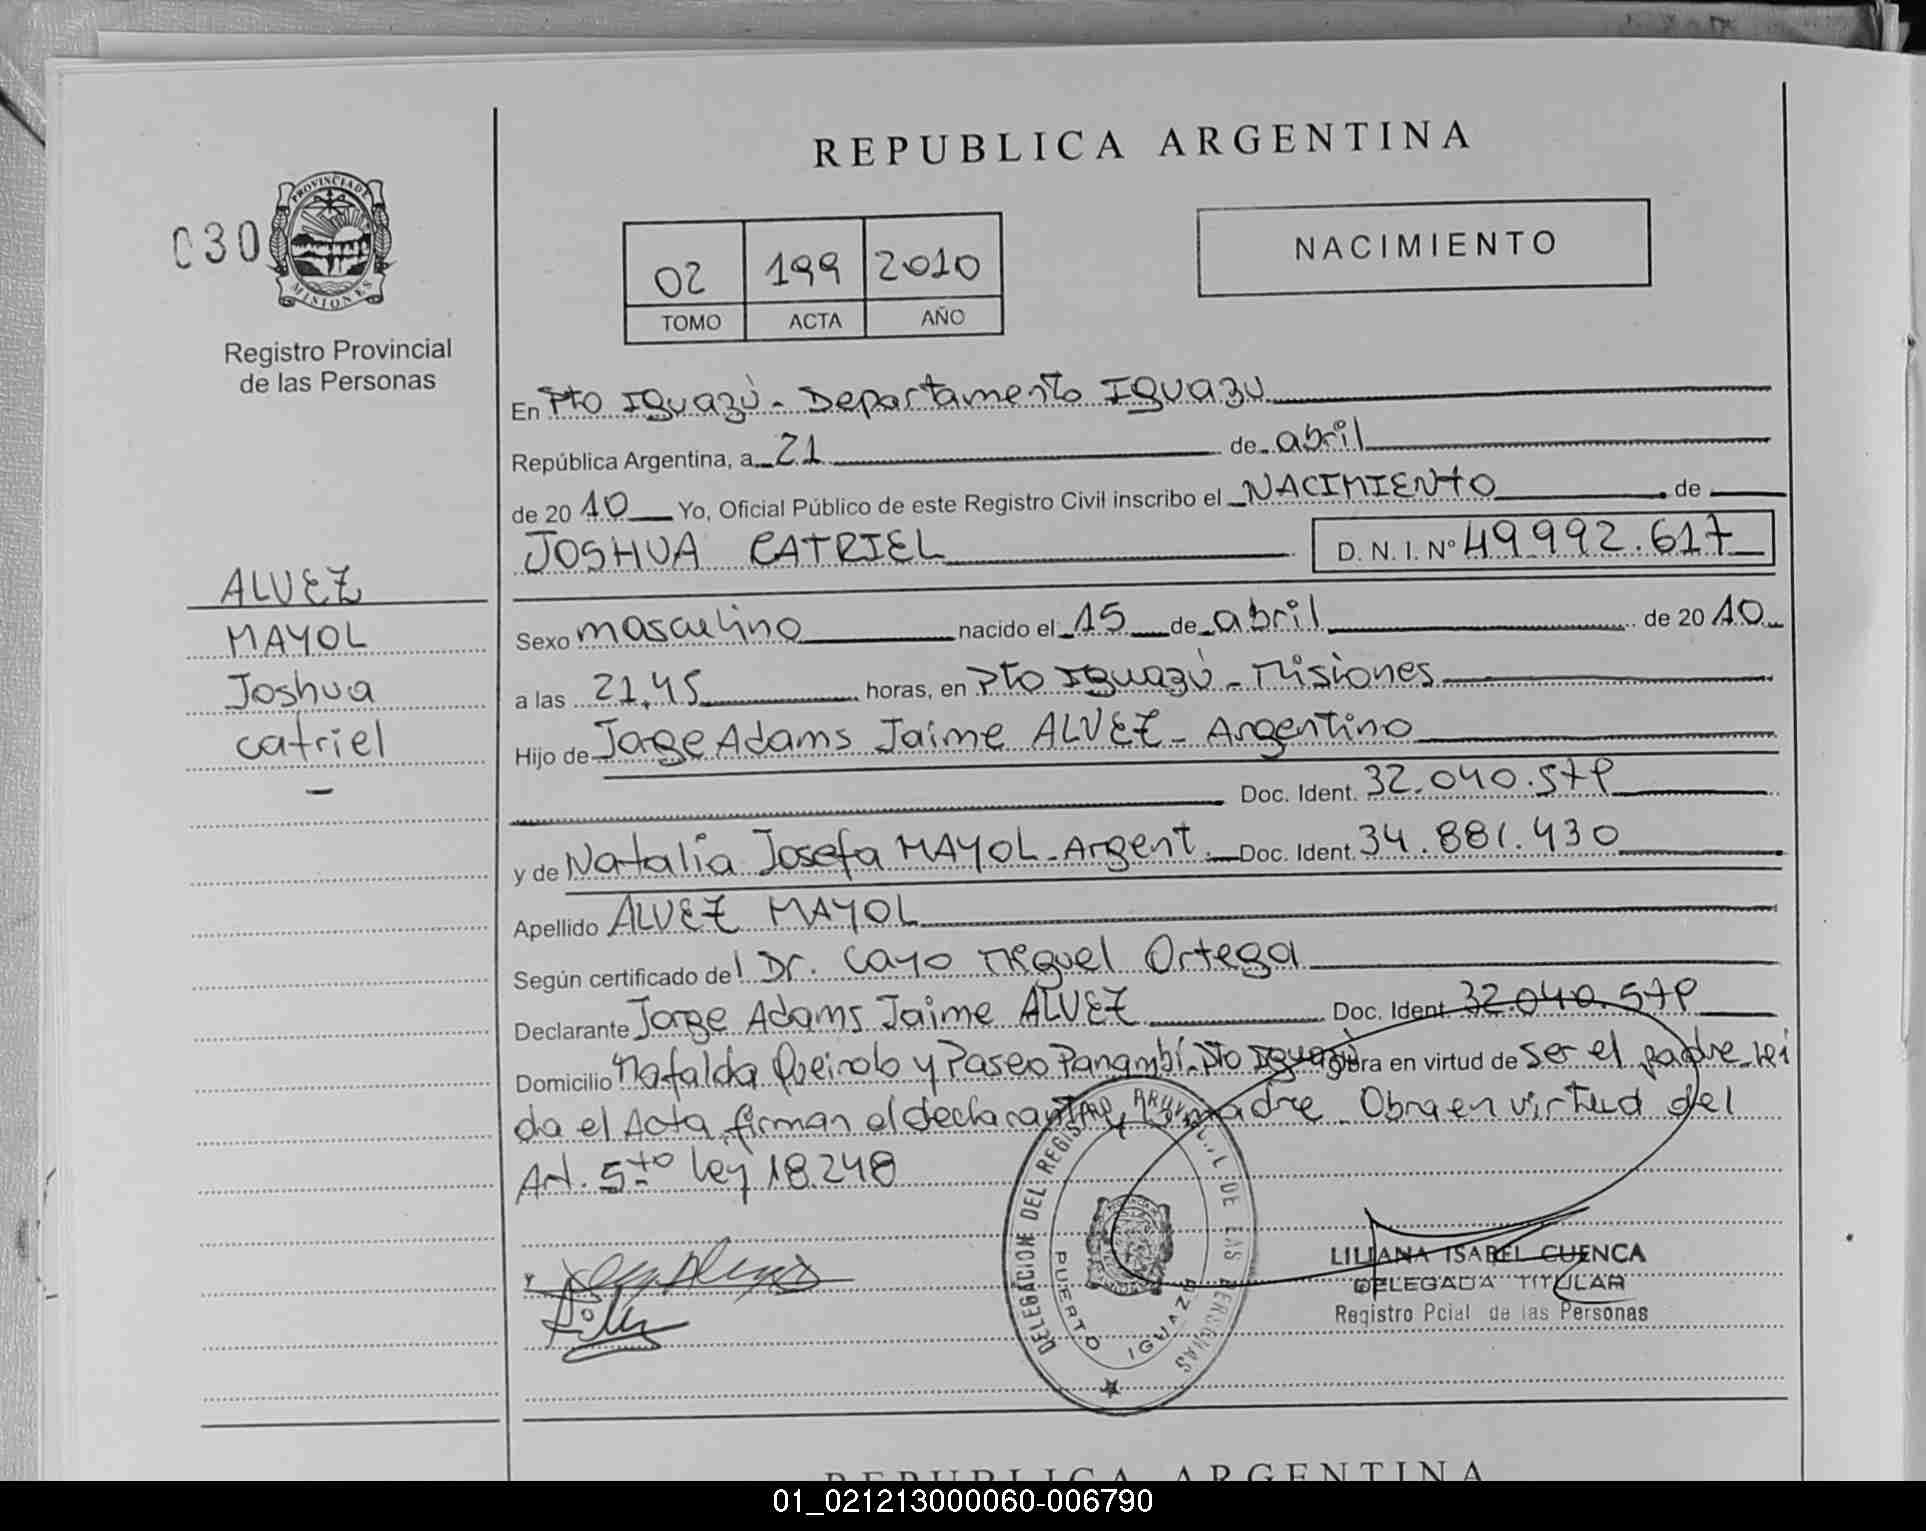 REPUBLICA ARGENTINA
030
PROVINCIA DE
MISIONES
Registro Provincial
de las Personas
02 199 2010
TOMO ACTA AÑO
NACIMIENTO
En Pto Iguazú - Departamento Iguazú
República Argentina, a 21 de abril
de 2010 Yo, Oficial Público de este Registro Civil inscribo el NACIMIENTO de
JOSHUA CATRIEL D. N. I. Nº 49992.617
ALVEZ
MAYOL
Joshua
catriel
Sexo masculino nacido el 15 de abril de 2010
a las 21,45 horas, en Pto Iguazú - Misiones
Hijo de Jorge Adams Jaime ALVEZ - Argentino
Doc. Ident. 32.040.579
y de Natalia Josefa MAYOL - Argent. Doc. Ident. 34.881.430
Apellido ALVEZ MAYOL
Según certificado del Dr. Cayo Miguel Ortega
Declarante Jorge Adams Jaime ALVEZ Doc. Ident. 32.040.579
Domicilio Mafalda Queirolo y Paseo Panambí - Pto Iguazú Obra en virtud de ser el padre - Leí
da el Acta, firman el declarante y la madre - Obra en virtud del
Art. 5to ley 18.248
DELEGACION DEL REGISTRO PROVINCIAL DE LAS PERSONAS
PUERTO IGUAZU
LILIANA ISABEL CUENCA
DELEGADA TITULAR
Registro Pcial de las Personas
REPUBLICA ARGENTINA
01_021213000060-006790